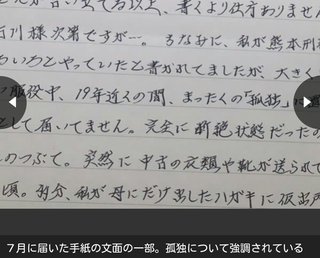 い立てる以上、書くより仕方ありません
石川様次第ですが…。ちなみに、私が熊本刑
ろいろとやっていたと書かれてましたが、大きく
服役中、19年近くの間、まったくの「孤独」
として届いてません。完全に断絶状態だったの
のつぶて。突然に中古の衣類や靴が送られて
頃。多分、私が母にだけ出したハガキに仮出所
７月に届いた手紙の文面の一部。孤独について強調されている